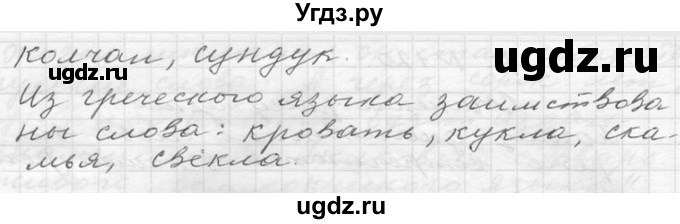 Угдз.ру
колчан, сундук.
ugdz.ru
ugdz.ru
Из греческого языка заимствова
ны слова: кровать, кукла, ска-
мья, свёкла.
ugdz.ru
ugdz.ru